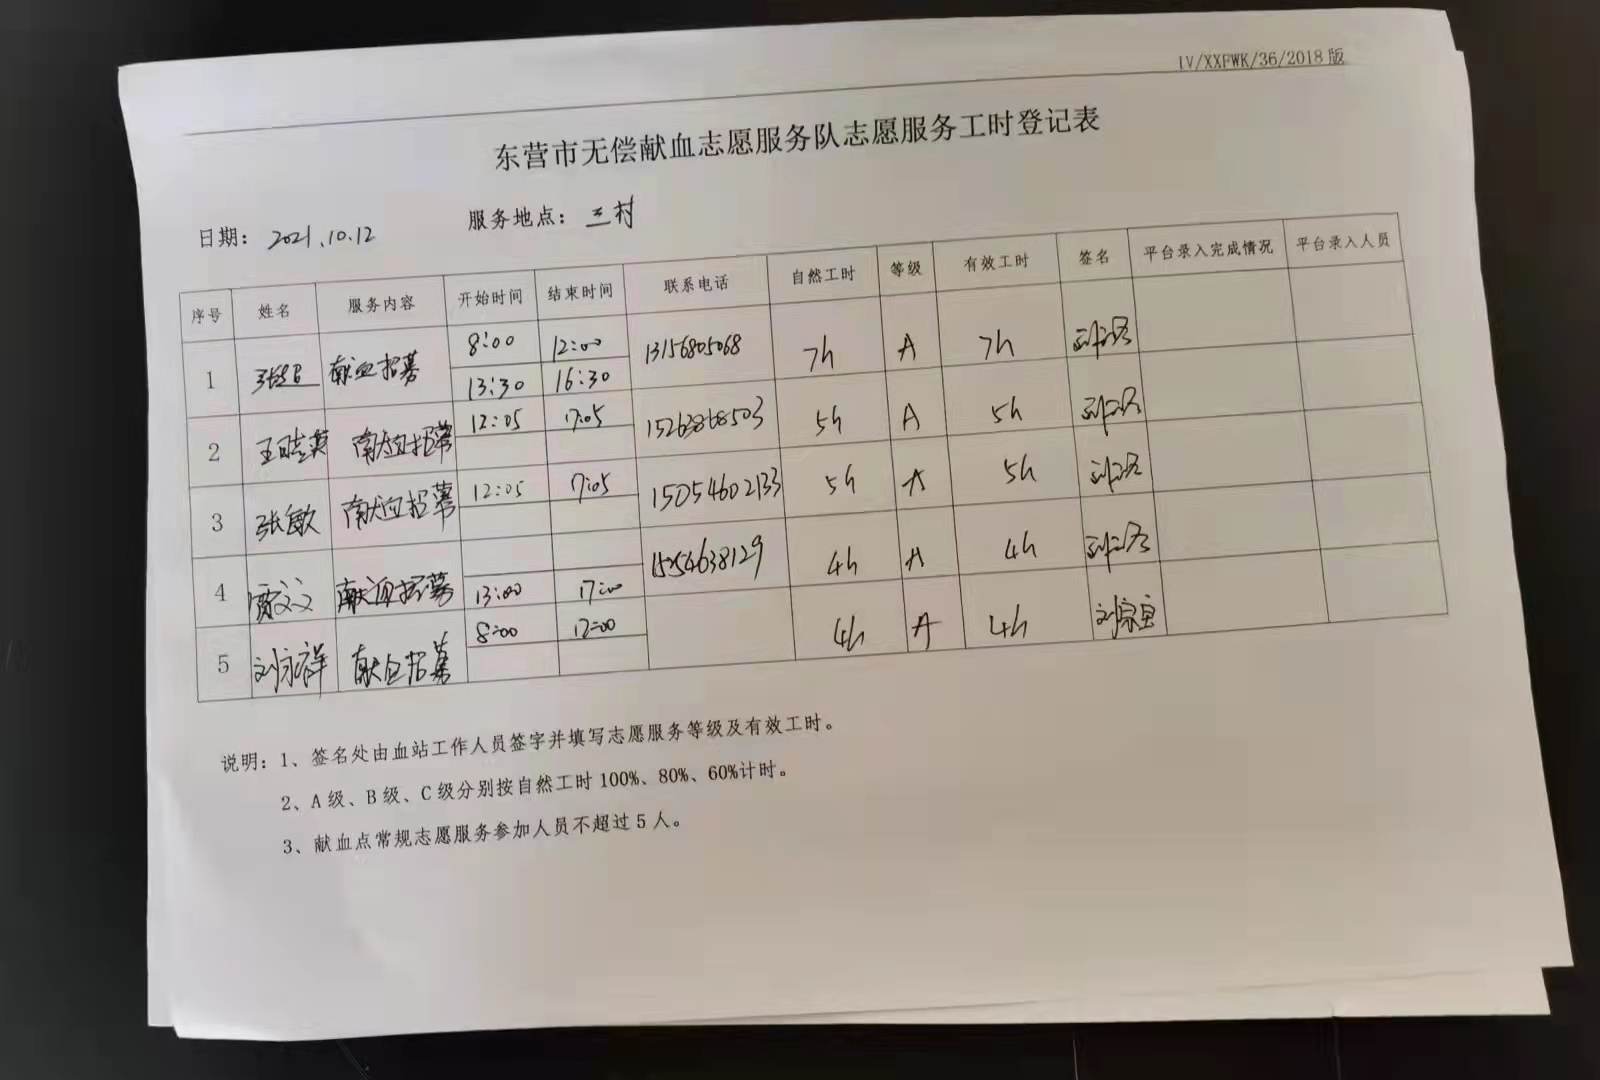 LV/XXFWK/36/2018版
东营市无偿献血志愿服务队志愿服务工时登记表
日期： 2021.10.12 服务地点： 三村
序号 姓名 服务内容 开始时间 结束时间 联系电话 自然工时 等级 有效工时 签名 平台录入完成情况 平台录入人员
8:00 12:00
1 献血招募 13156805068 7h A 7h
13:30 16:30
12:05 17:05
2 王晓英 献血招募 15263868503 5h A 5h
12:05 17:05
3 张敏 献血招募 15054602133 5h A 5h
4 贾文文 献血招募 15254638129 4h A 4h
13:00 17:00
8:00 12:00
5 刘永祥 献血招募 4h A 4h
说明：1、签名处由血站工作人员签字并填写志愿服务等级及有效工时。
2、A级、B级、C级分别按自然工时100%、80%、60%计时。
3、献血点常规志愿服务参加人员不超过5人。